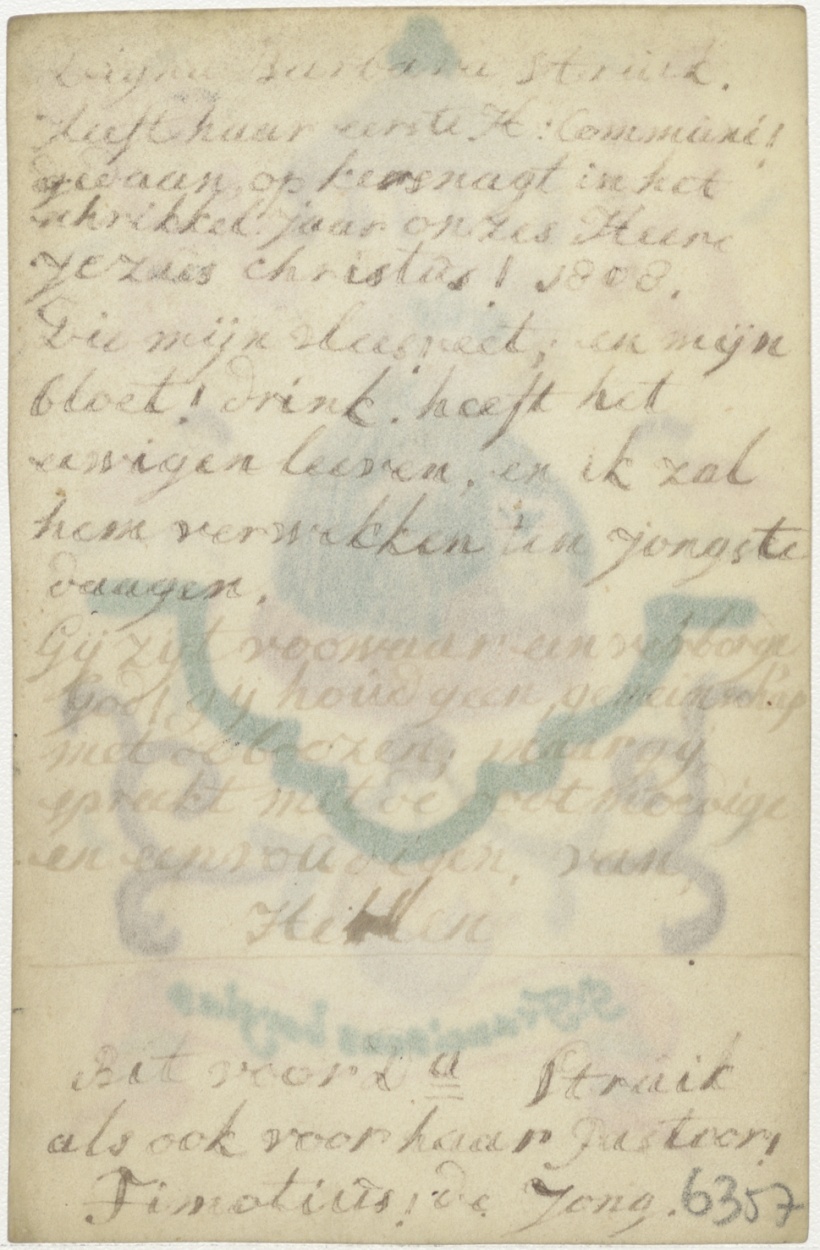 Digna Barbara Struik.
Heeft haar eerste H: Communi!
gedaan, op kersnagt in het
schrikkel jaar onzes Heere
Jezues christus! 1808.
Die mijn vlees eet, en mijn
bloet! drink. heeft het
eewigen leeven, en ik zal
hem verwekken ten jongste
daagen.
Gij zijt voorwaar een verborge
God, gij houd geen, gemeinschap
met de boozen, maar gij
spreekt met de ootmoedige
en eenvoudigen. van
S. Franciscus borgias
Bit voor D a Struik
als ook voor haar Pastoor!
Timotius! de Jong.
6357